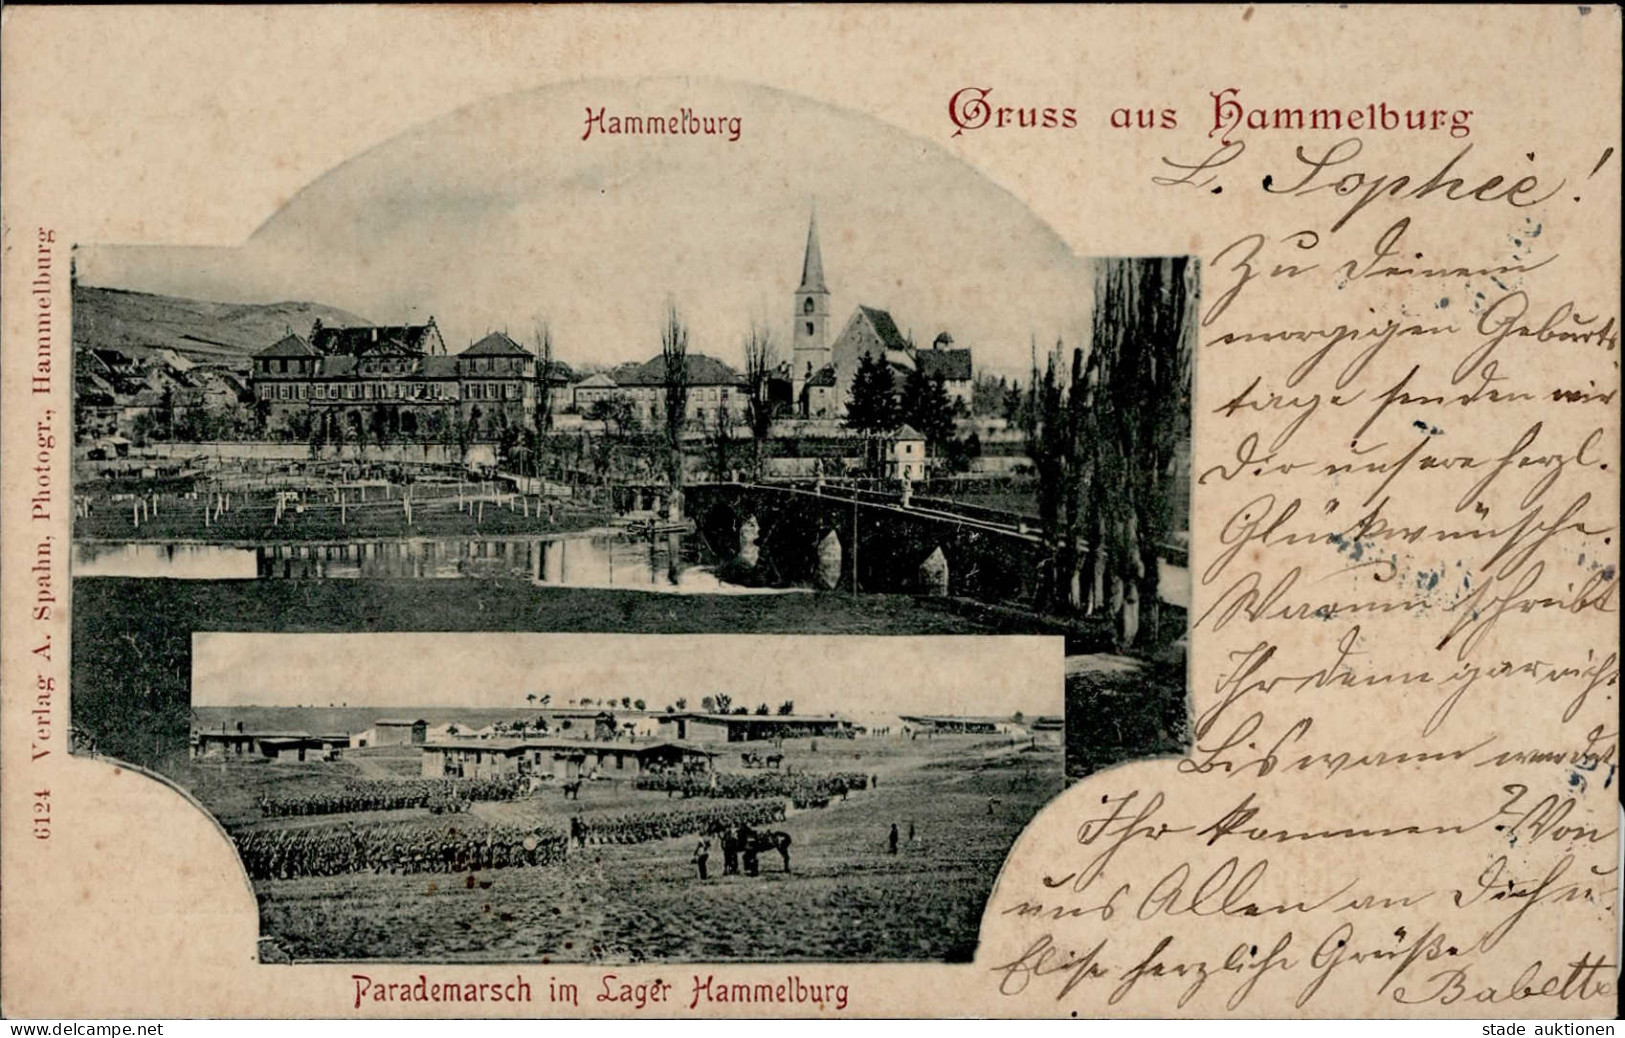 Hammelburg
Gruss aus Hammelburg
L. Sophie!
Zu Deinem
morgigen Geburts
tage senden wir
Dir unsere herzl.
Glückwünsche.
Warum schreibt
Ihr denn gar nicht.
Bis wann werdet
Ihr kommen? Von
uns Allen an Dich u.
Elise herzliche Grüße
Babette
Parademarsch im Lager Hammelburg
6124 Verlag A. Spahn, Photogr., Hammelburg
www.delcampe.net
stade auktionen